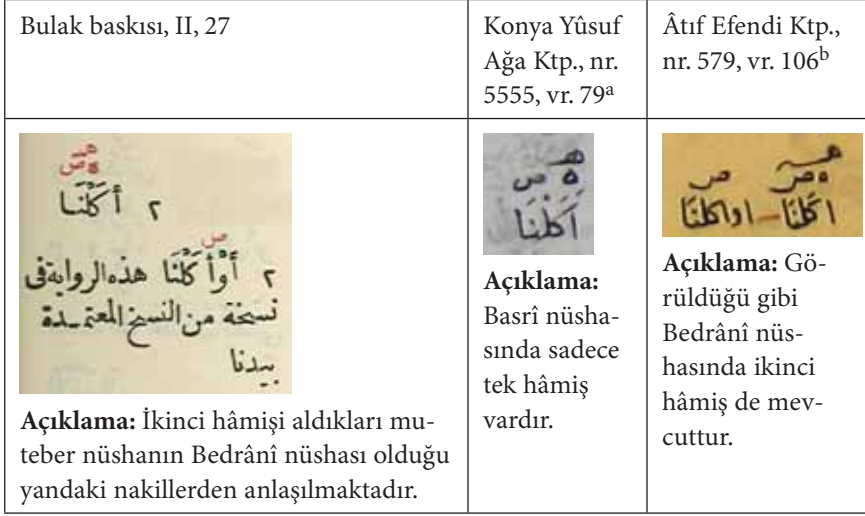 Bulak baskısı, II, 27
Konya Yûsuf
Ağa Ktp., nr.
5555, vr. 79a
Âtıf Efendi Ktp.,
nr. 579, vr. 106b
ص
٢ أَكَلْنَا
ص
٢ أَوْأَكَلْنَا هذه الرواية فى
نسخة من النسخ المعتمدة
بيدنا
Açıklama: İkinci hâmişi aldıkları mu-
teber nüshanın Bedrânî nüshası olduğu
yandaki nakillerden anlaşılmaktadır.
ه ص
أَكَلْنَا
Açıklama:
Basrî nüsha-
sında sadece
tek hâmiş
vardır.
ص
اكلنا اواكلنا
Açıklama: Gö-
rüldüğü gibi
Bedrânî nüs-
hasında ikinci
hâmiş de mev-
cuttur.